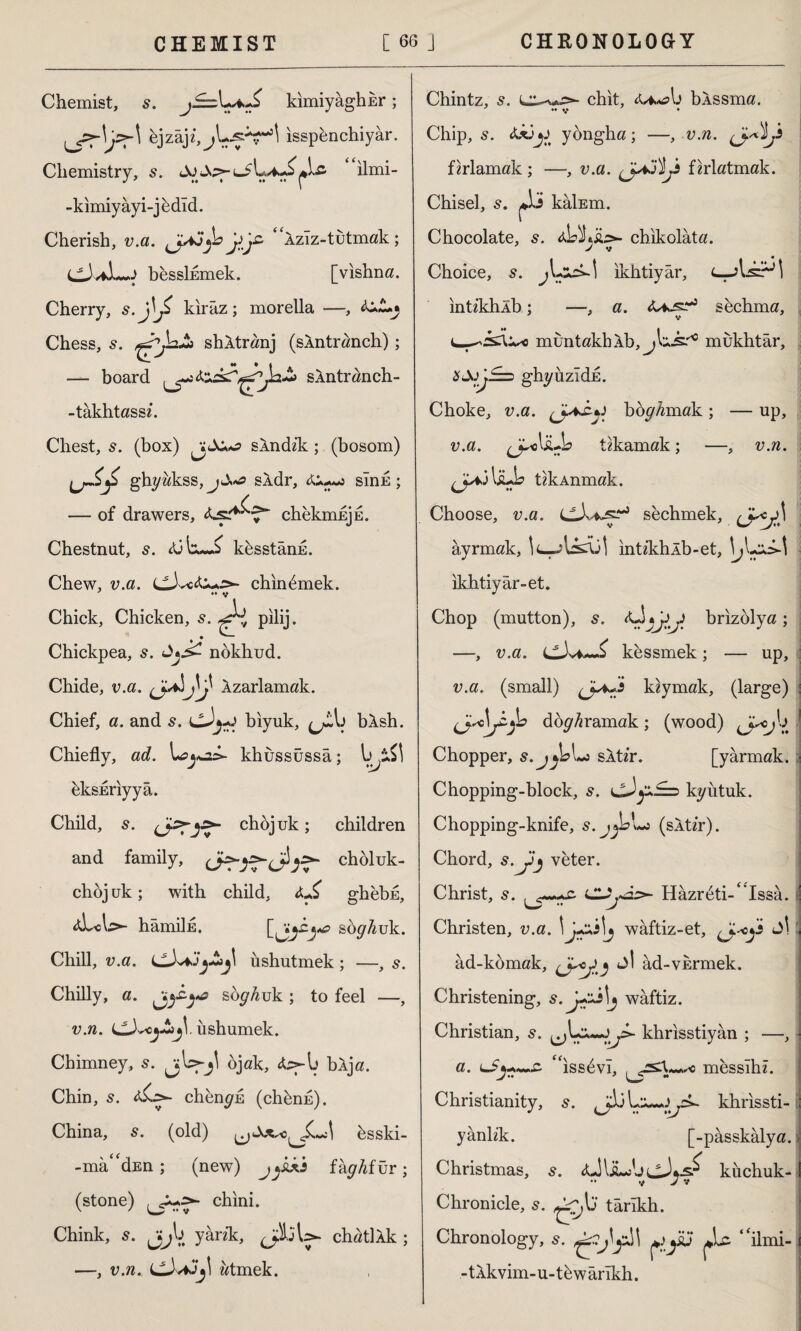 CHEMIST [ 66 ] CHRONOLOGY
Chemist, s. كيمياگر kìmiyàghEr ;
اجزاجی èjzājì, اسپنچیار ìsspènchiyàr.
Chemistry, s. علم كيمياى جديد “ìlmi-
-kìmiyàyi-jèdīd.
Cherish, v.a. عزيز طوتمق “Àzīz-tùtmak ;
بسلمك bèsslEmek. [vìshna.
Cherry, s. كراز kìràz ; morella —, وشنه
Chess, s. شطرنج shÀtranj (sÀntranch) ;
— board شطرنج تخته سى sÀntranch-
-tàkhtassi.
Chest, s. (box) صندق sÀndik ; (bosom)
كوكس ghyukss, صدر sÀdr, سينه sīnE ;
— of drawers, چكمجه chèkmEjE.
Chestnut, s. كستانه kèsstānE.
Chew, v.a. چينه مك chinémek.
Chick, Chicken, s. پلج pìlij.
Chickpea, s. نخود nòkhud.
Chide, v.a. ازارلمق Àzarlamak.
Chief, a. and s. بيوك bìyuk, باش bÀsh.
Chiefly, ad. خصوصا khùssūssā ; اكثريا
èksErìyyā.
Child, s. چوجوق chòjuk ; children
and family, چولوق چوجوق chòluk-
chòjuk ; with child, گبه ghèbE,
حامله hāmìlE. [صوغوق sòghuk.
Chill, v.a. اوشوتمك ùshutmek ; —, s.
Chilly, a. صوغوق sòghuk ; to feel —,
v.n. اوشومك ùshumek.
Chimney, s. اوجاق òjak, باجه bÀja.
Chin, s. چكه chèngE (chènE).
China, s. (old) اسكى معدن èsski-
-mà“dEn ; (new) فغفور fàghfūr ;
(stone) چينى chìni.
Chink, s. يارق yàrik, چاتلاق chàtlÀk ;
—, v.n. اوتمك ùtmek.
Chintz, s. چيت chìt, باصمه bÀssma.
Chip, s. يونغه yòngha ; —, v.n. فرلمق
fìrlamak ; —, v.a. فرلتمق fìrlatmak.
Chisel, s. قلم kàlEm.
Chocolate, s. چقولاطه chìkolàta.
Choice, s. اختيار ìkhtiyār, انتخاب
ìntikhÀb ; —, a. سچمه sèchma,
منتخب mùntakhÀb, مختار mùkhtār,
گزيده ghyùzīdE.
Choke, v.a. بوغمق bòghmak ; — up,
v.a. طيقامق tìkamak ; —, v.n.
طيقانمق tìkAnmak.
Choose, v.a. سچمك sèchmek, ايرمق
àyrmak, انتخاب ا ìntikhÀb-et, اختيار ا
ìkhtiyār-et.
Chop (mutton), s. بريزوليه brìzòlya ;
—, v.a. كسمك kèssmek ; — up,
v.a. (small) قيمق kìymak, (large)
طوغرامق dòghramak ; (wood) يارمق
Chopper, s. ساطور sÀtir. [yàrmak.
Chopping-block, s. كوتوك kyùtuk.
Chopping-knife, s. ساطور (sÀtir).
Chord, s. وتر vèter.
Christ, s. حضرت عيسى Hàzréti-“Issà.
Christen, v.a. وافتيز ا wàftiz-et, اد قومق
àd-kòmak, اد ويرمك àd-vErmek.
Christening, s. وافتيز wàftiz.
Christian, s. خرستيان khrìsstiyàn ; —,
a. عيسوى “ìssévī, مسيحى mèssīhī.
Christianity, s. خرستيانلق khrìssti-
yànlik. [-pàsskàlya.
Christmas, s. كوچك پاسقاليه kùchuk-
Chronicle, s. تاريخ tārīkh.
Chronology, s. علم تقويم التواريخ “ìlmi-
-tÀkvim-u-tèwārīkh.